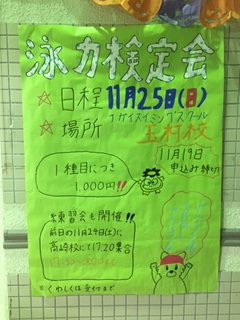 泳力検定会
☆日程 11月25日(日)
ナガイスイミングスクール
☆場所 玉村校
11月19日
申込み締切
1種目につき
1,000円!!
練習会も開催!!
前日の11月24日(土)に
高崎校にて17:20集合
17:30~18:30まで
※くわしくは受付まで